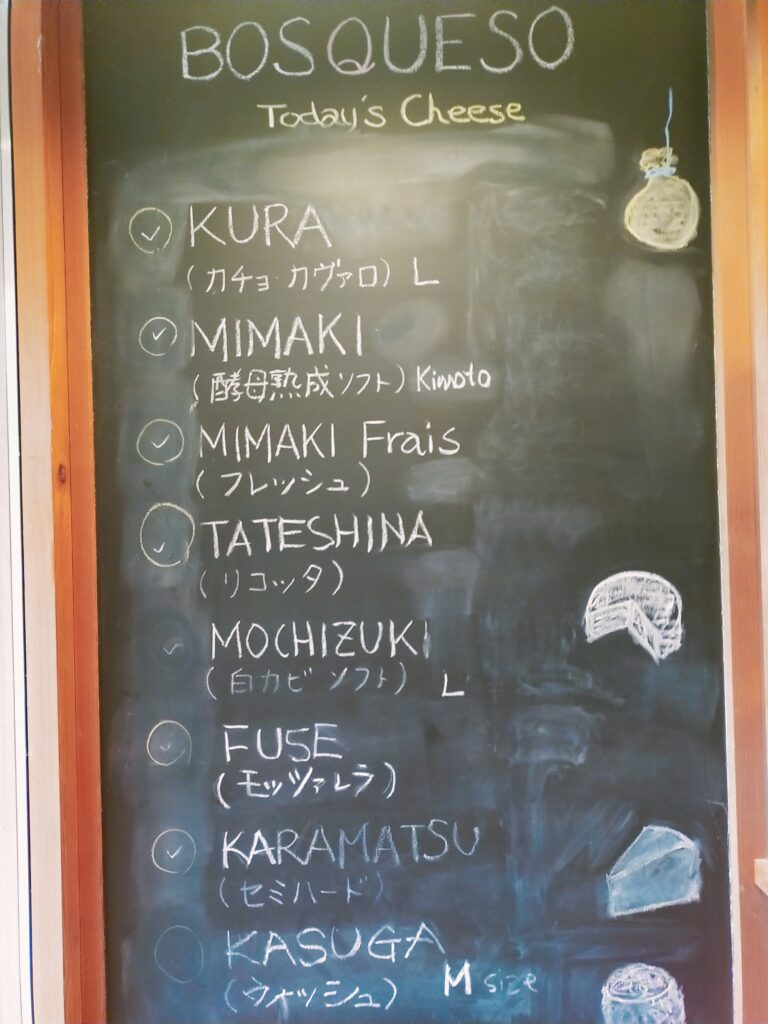 BOSQUESO
Today's Cheese
KURA
(カチョ カヴァロ) L
MIMAKI
(酵母熟成ソフト) Kimoto
MIMAKI Frais
(フレッシュ)
TATESHINA
(リコッタ)
MOCHIZUKI
(白カビ ソフト) L
FUSE
(モッツァレラ)
KARAMATSU
(セミハード)
KASUGA
(ウォッシュ) M size